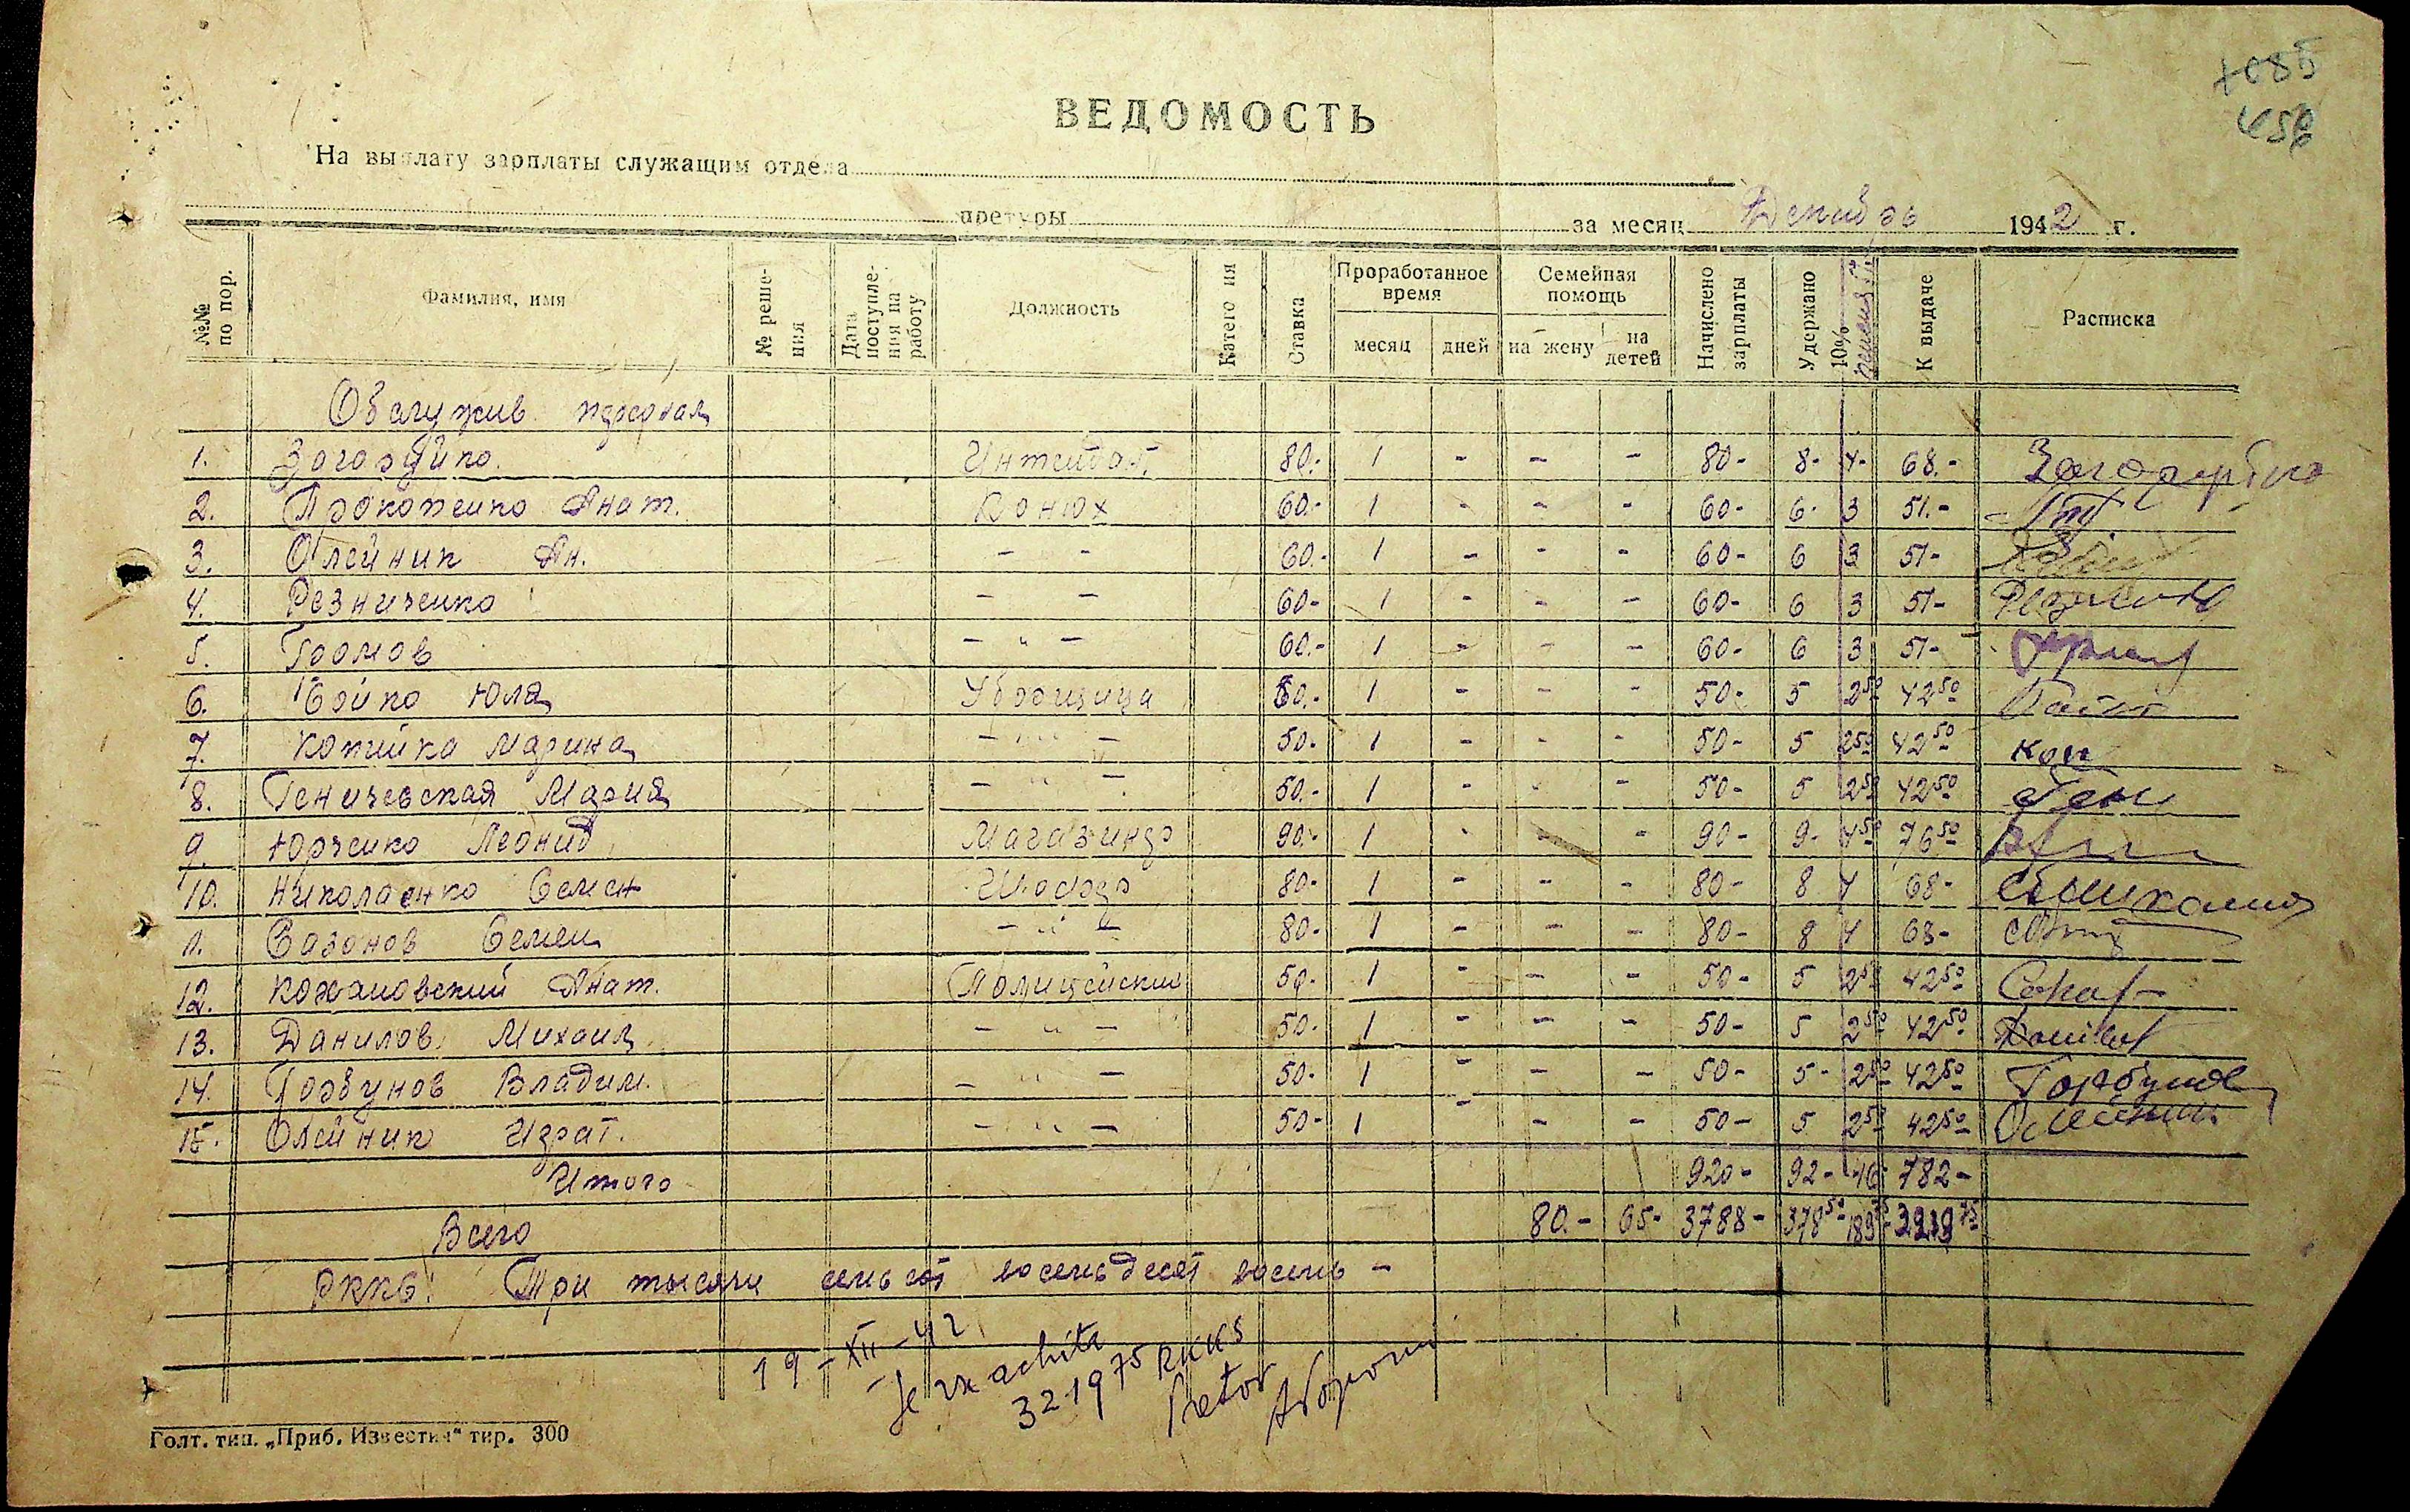 ВЕДОМОСТЬ
На выплату зарплаты служащим отдела
претуры за месяц Декабрь 1942 г.
№№ по пор. Фамилия, имя № решения Дата поступления на работу Должность Категория Ставка Проработанное время месяц дней Семейная помощь на жену на детей Начислено зарплаты Удержано 10% К выдаче Расписка
Обслужив. персонал
1. Загоруйко Интендат. 80.- 1 - - - 80- 8- 4- 68.- Загоруйко
2. Прокопенко Анат. Конюх 60.- 1 - - - 60- 6- 3 51.-
3. Олейник Ан. - - 60.- 1 - - - 60- 6 3 51-
4. Резниченко - - 60- 1 - - - 60- 6 3 51-
5. Громов - " - 60.- 1 - - - 60- 6 3 51-
6. Бойко Юля Уборщица 50.- 1 - - - 50- 5 2 50 42 50
7. Копийка Марина - " - 50- 1 - - - 50- 5 2 50 42 50 Коп
8. Геничевская Мария - " - 50.- 1 - - - 50- 5 2 50 42 50 Гени
9. Юрченко Леонид Магазинер 90.- 1 - - - 90- 9- 4 50 76 50
10. Николаенко Семен Шофер 80- 1 - - - 80- 8 4 68-
11. Сазонов Семен - " - 80- 1 - - - 80- 8 4 68-
12. Кохановский Анат. Полицейский 50- 1 - - - 50- 5 2 50 42 50
13. Данилов Михаил - " - 50- 1 - - - 50- 5 2 50 42 50
14. Горбунов Владим. - " - 50- 1 - - - 50- 5- 2 50 42 50 Горбунов
15. Олейник Игнат. - " - 50- 1 - - - 50- 5 2 50 42 50 Олейник
Итого 920- 92- 46- 782-
Всего 80.- 65- 3788- 378 50 189 75 3219 75
РККС: Три тысячи семьсот восемьдесят восемь -
19-XII-42
Se va achita
3219 75 RKKS
Pretor
Голт. тип. „Приб. Известия“ тир. 300